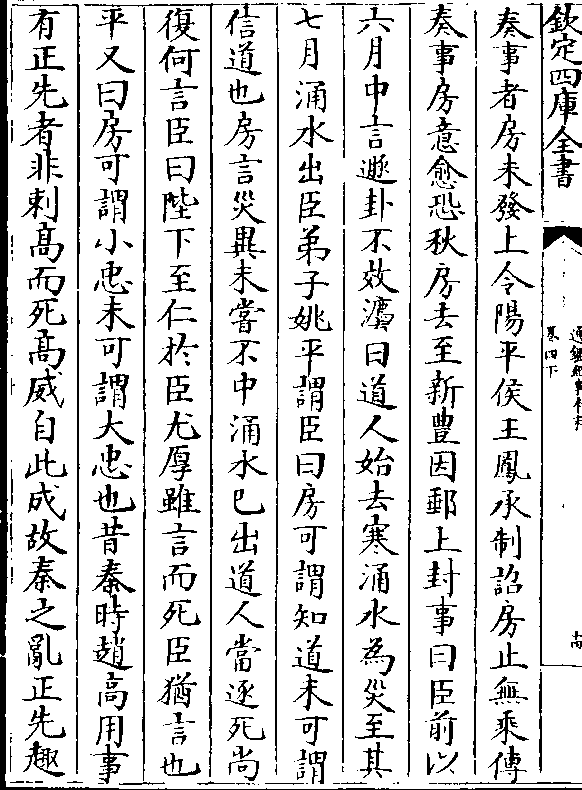 欽定四庫全書
卷四下
奏事者房未發上令陽平侯王鳳承制詔房止無乘傳
奏事房意愈恐秋房去至新豐因郵上封事曰臣前以
六月中言遯卦不效灋曰道人始去寒涌水為災至其
七月涌水出臣弟子姚平謂臣曰房可謂知道未可謂
信道也房言災異未嘗不中涌水已出道人當逐死尚
復何言臣曰陛下至仁於臣尤厚雖言而死臣猶言也
平又曰房可謂小忠未可謂大忠也昔秦時趙高用事
有正先者非刺髙而死髙威自此成故秦之亂正先趣